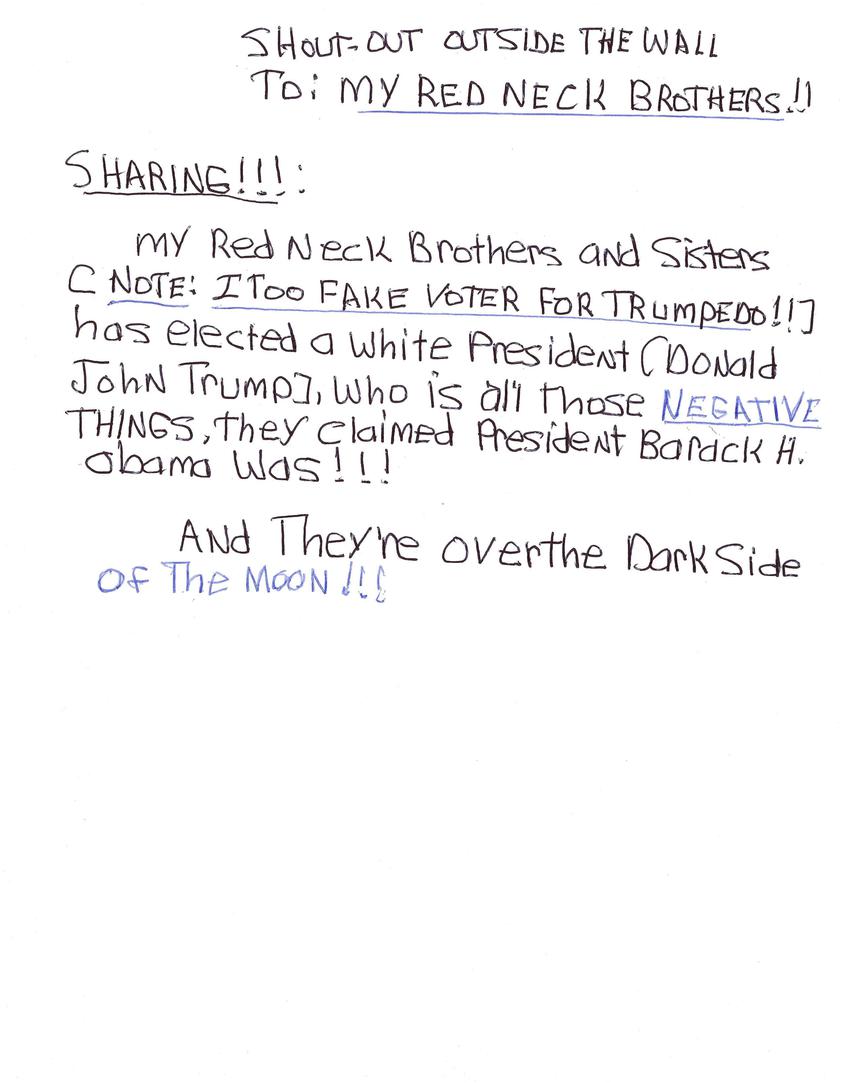 SHOUT-OUT OUTSIDE THE WALL
TO: MY RED NECK BROTHERS!!
SHARING!!!:
MY Red Neck Brothers and Sisters
[ NOTE: I Too FAKE VOTER FOR TRUMPEDO!!]
has elected a white President [Donald
John Trump], who is all those NEGATIVE
THINGS, they claimed President Barack H.
Obama Was!!!
And They're overthe Dark Side
OF The MOON!!!